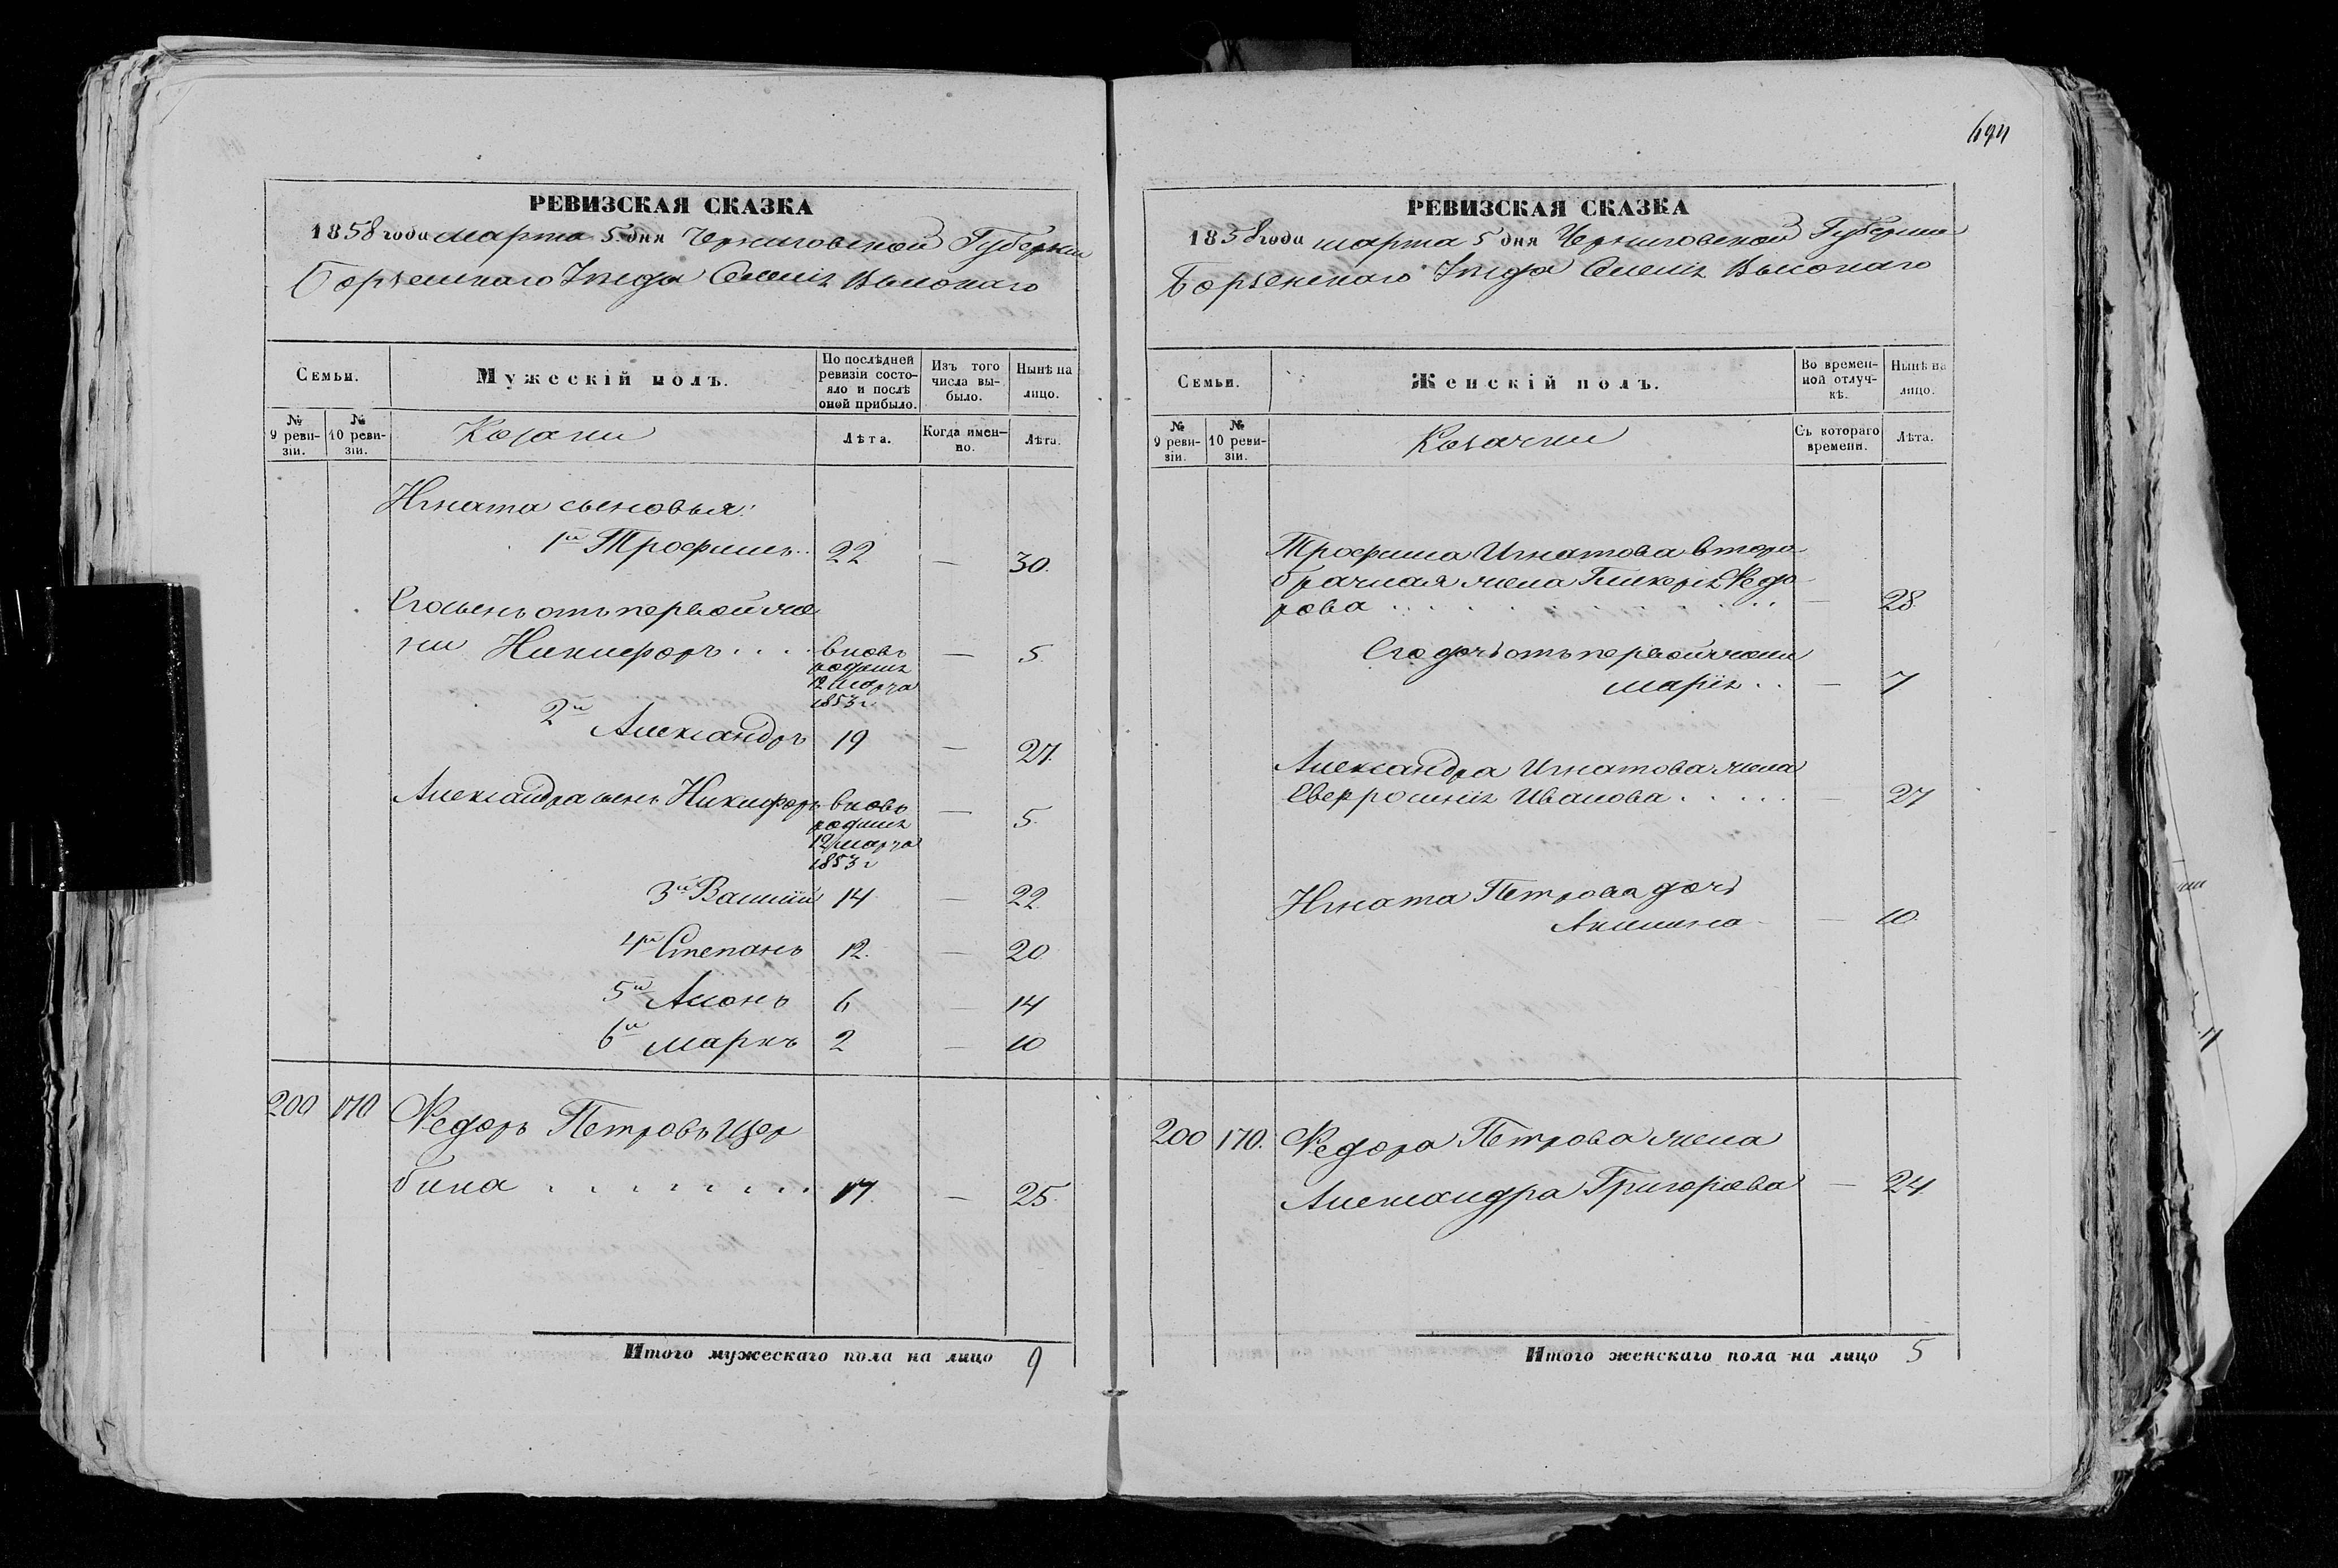 694
РЕВИЗСКАЯ СКАЗКА
1858 года марта 5 дня Черниговской Губерніи
Борзенскаго Уѣзда Селенія Высокаго
Семьи.
Мужескій полъ.
По послѣдней ревизіи состояло и послѣ оной прибыло.
Изъ того числа выбыло.
Нынѣ на лицо.
№ 9 ревизіи.
№ 10 ревизіи.
Козаки
Лѣта.
Когда именно.
Лѣта.
Игната сыновья:
1й Трофимъ.. 22 — 30.
Его сынъ отъ первой же
ны Никифоръ.... вновь — 5.
родился
12 марта
1853 г
2й Александръ 19 — 27.
Александра сынъ Никифоръ вновь — 5.
родился
12 марта
1853 г
3й Василій 14 — 22
4й Степанъ 12. — 20
5й Амонъ 6 — 14
6й Маркъ 2 — 10
200 170 Федоръ Петровъ Щер
бина ........ 17. — 25.
Итого мужескаго пола на лицо 9
РЕВИЗСКАЯ СКАЗКА
1858 года марта 5 дня Черниговской Губерніи
Борзенскаго Уѣзда Селенія Высокаго
Семьи.
Женскій полъ.
Во временной отлучкѣ.
Нынѣ на лицо.
№ 9 ревизіи.
№ 10 ревизіи.
Козачки
Съ котораго времени.
Лѣта.
Трофима Игнатова второ
брачная жена Гликерія Федо
рова ........ — 28.
Его дочь отъ первой жены
Марія .. — 7
Александра Игнатова жена
Евфросинія Иванова ..... — 27
Игната Петрова дочь
Акилина — 10.
200 170. Федора Петрова жена
Александра Григорьева — 24.
Итого женскаго пола на лицо 5